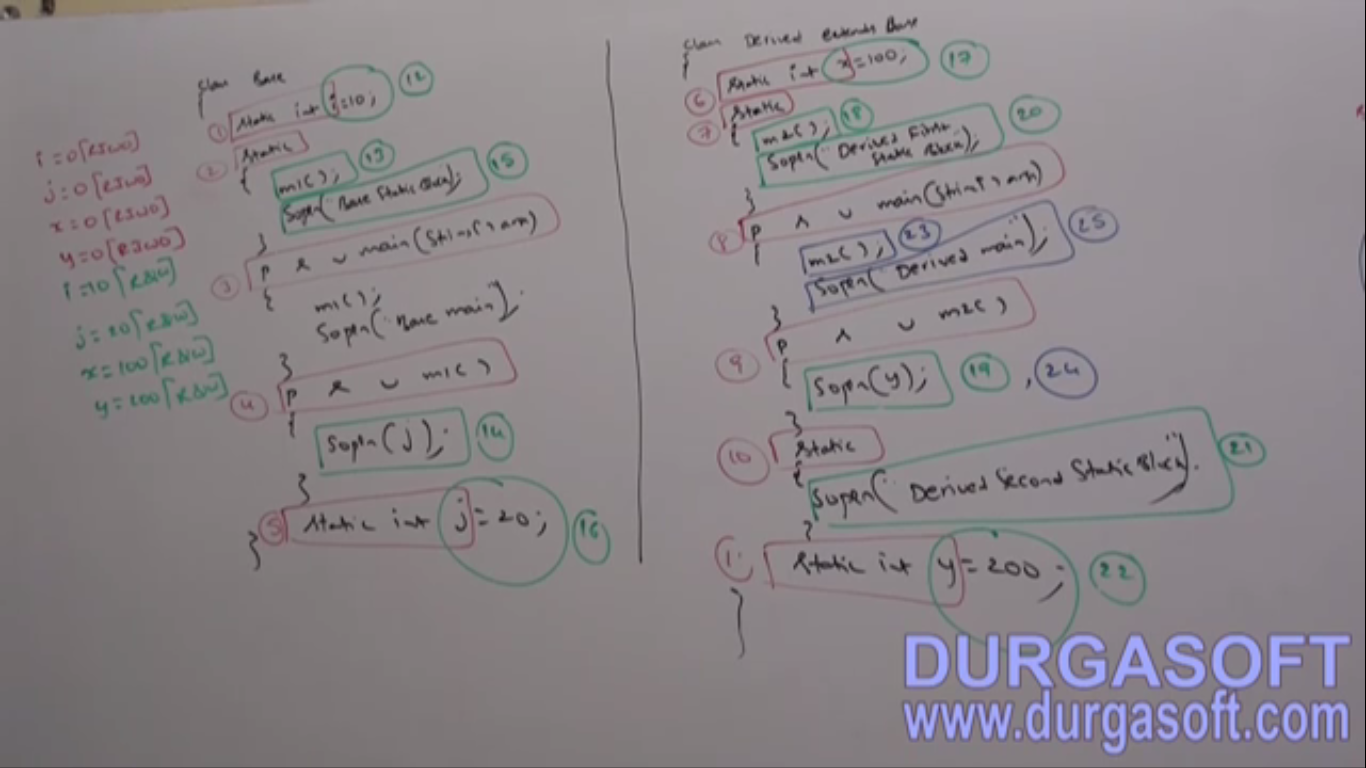 i=0[RIWO]
j=0[RIWO]
x=0[RIWO]
y=0[RIWO]
i=10[R&W]
j=20[R&W]
x=100[R&W]
y=200[R&W]
class Base
{
① static int i=10; ⑫
② static
{ m1(); ⑬
Sopln("Base Static Block"); ⑮
}
③ p s v main(String[] args)
{ m1();
Sopln("Base main");
}
④ p s v m1()
{
Sopln(j); ⑭
}
⑤ static int j=20; ⑯
}
class Derived extends Base
{
⑥ static int x=100; ⑰
⑦ static
{ m2(); ⑱
Sopln("Derived First
Static Block"); ⑳
}
⑧ p s v main(String[] args)
{ m2(); ㉓
Sopln("Derived main"); ㉕
}
⑨ p s v m2()
{ Sopln(y); ⑲ , ㉔
}
⑩ static
{
Sopln("Derived Second Static Block"); ㉑
}
static int y=200; ㉒
}
DURGASOFT
www.durgasoft.com